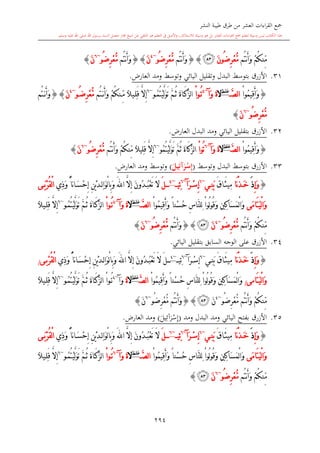 جمع القراءات العشر من طرق طيبة النشر
مِّنكُمْ وَأَنتُم مُّعْرِضُونَ ﴿٨٣﴾ ﴿ وَأَنتُم مُّعْرِضُونَ ﴾ ﴿ وَأَنتُم مُّعْرِضُونَ ﴾
٣١. الأزرق بتوسط البدل وتقليل اليائي وتوسط ومد العارض.
﴿ وَأَقِيمُوا الصَّلَاةَ وَآتُوا الزَّكَاةَ ثُمَّ تَوَلَّيْتُمْ إِلَّا قَلِيلًا مِّنكُمْ وَأَنتُم مُّعْرِضُونَ ﴾ ﴿ وَأَنتُم
مُّعْرِضُونَ ﴾
٣٢. الأزرق بتقليل اليائي ومد البدل ومد العارض.
﴿ وَأَقِيمُوا الصَّلَاةَ وَآتُوا الزَّكَاةَ ثُمَّ تَوَلَّيْتُمْ إِلَّا قَلِيلًا مِّنكُمْ وَأَنتُم مُّعْرِضُونَ ﴾
٣٣. الأزرق بتوسط البدل وتوسط (إِسْرَآئِيلَ) وتوسط ومد العارض.
﴿ وَإِذْ أَخَذْنَا مِيثَاقَ بَنِي إِسْرَائِيلَ لَا تَعْبُدُونَ إِلَّا اللَّهَ وَبِالْوَالِدَيْنِ إِحْسَانًا وَذِي الْقُرْبَىٰ
وَالْيَتَامَىٰ وَالْمَسَاكِينِ وَقُولُوا لِلنَّاسِ حُسْنًا وَأَقِيمُوا الصَّلَاةَ وَآتُوا الزَّكَاةَ ثُمَّ تَوَلَّيْتُمْ إِلَّا قَلِيلًا
مِّنكُمْ وَأَنتُم مُّعْرِضُونَ ﴿٨٣﴾ ﴿ وَأَنتُم مُّعْرِضُونَ ﴾
٣٤. الأزرق على الوجه السابق بتقليل اليائي.
﴿ وَإِذْ أَخَذْنَا مِيثَاقَ بَنِي إِسْرَائِيلَ لَا تَعْبُدُونَ إِلَّا اللَّهَ وَبِالْوَالِدَيْنِ إِحْسَانًا وَذِي الْقُرْبَىٰ
وَالْيَتَامَىٰ وَالْمَسَاكِينِ وَقُولُوا لِلنَّاسِ حُسْنًا وَأَقِيمُوا الصَّلَاةَ وَآتُوا الزَّكَاةَ ثُمَّ تَوَلَّيْتُمْ إِلَّا قَلِيلًا
مِّنكُمْ وَأَنتُم مُّعْرِضُونَ ﴿٨٣﴾ ﴿ وَأَنتُم مُّعْرِضُونَ ﴾
٣٥. الأزرق بفتح اليائي ومد البدل ومد (إِسْرَآئِيلَ) ومد العارض.
﴿ وَإِذْ أَخَذْنَا مِيثَاقَ بَنِي إِسْرَائِيلَ لَا تَعْبُدُونَ إِلَّا اللَّهَ وَبِالْوَالِدَيْنِ إِحْسَانًا وَذِي الْقُرْبَىٰ
وَالْيَتَامَىٰ وَالْمَسَاكِينِ وَقُولُوا لِلنَّاسِ حُسْنًا وَأَقِيمُوا الصَّلَاةَ وَآتُوا الزَّكَاةَ ثُمَّ تَوَلَّيْتُمْ إِلَّا قَلِيلًا
مِّنكُمْ وَأَنتُم مُّعْرِضُونَ ﴿٨٣﴾ ﴾
٢٩٤